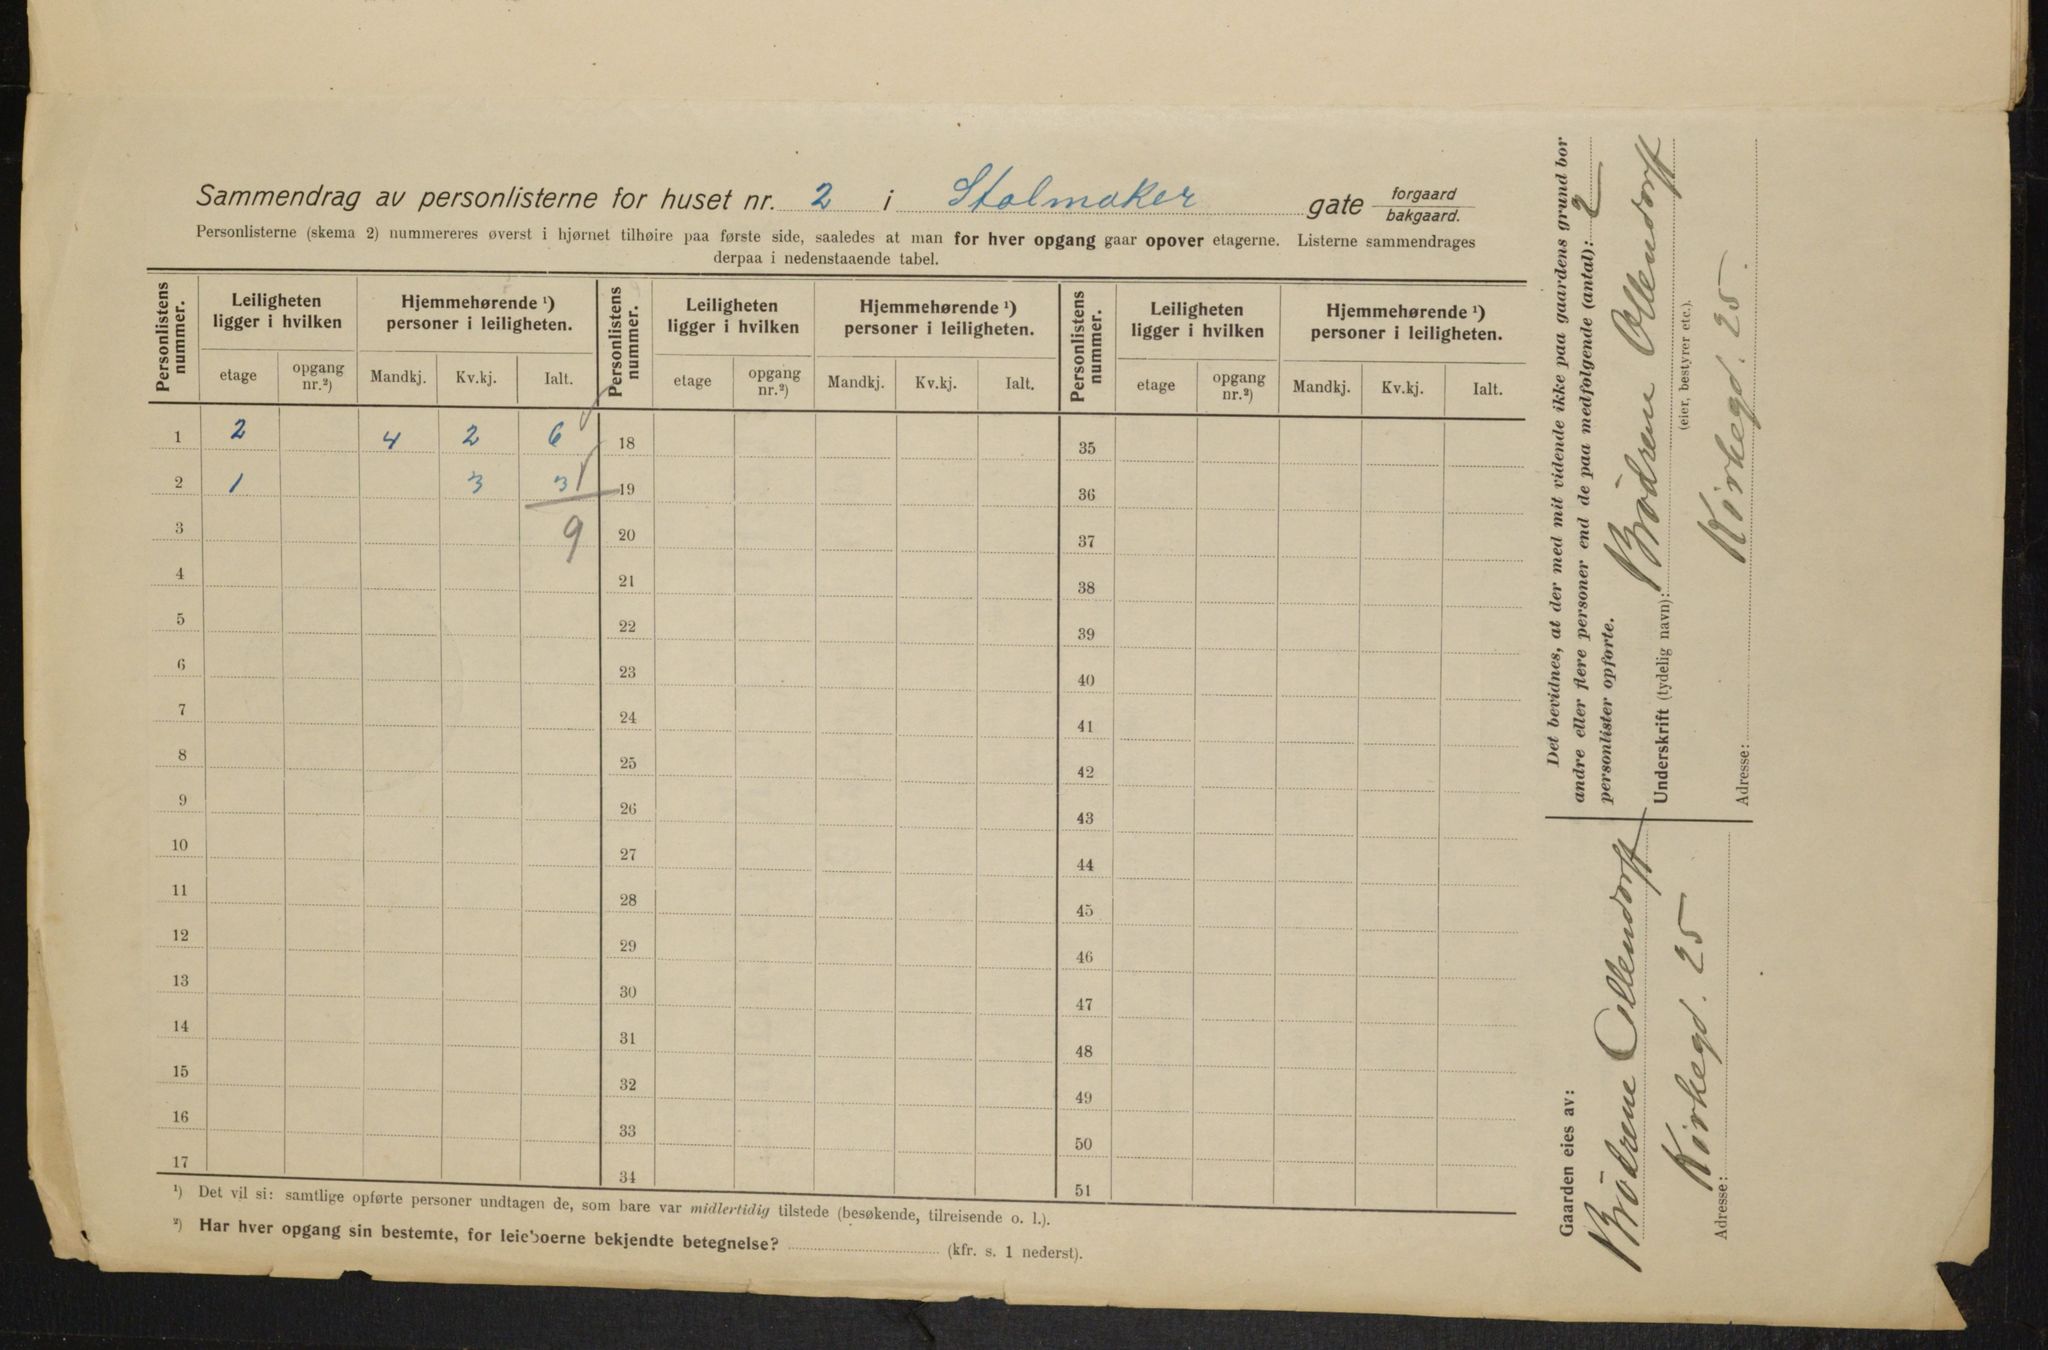 Sammendrag av personlisterne for huset nr. 2 i Stolmaker gate forgaard bakgaard.
Personlisterne (skema 2) nummereres øverst i hjørnet tilhøire paa første side, saaledes at man for hver opgang gaar opover etagerne. Listerne sammendrages
derpaa i nedenstaaende tabel.
Personlistens nummer. Leiligheten ligger i hvilken Hjemmehørende ¹) personer i leiligheten. Personlistens nummer. Leiligheten ligger i hvilken Hjemmehørende ¹) personer i leiligheten. Personlistens nummer. Leiligheten ligger i hvilken Hjemmehørende ¹) personer i leiligheten.
etage opgang nr.²) Mandkj. Kv.kj. Ialt. etage opgang nr.²) Mandkj. Kv.kj. Ialt. etage opgang nr.²) Mandkj. Kv.kj. Ialt.
1 2 4 2 6 18 35
2 1 3 3 19 36
3 9 20 37
4 21 38
5 22 39
6 23 40
7 24 41
8 25 42
9 26 43
10 27 44
11 28 45
12 29 46
13 30 47
14 31 48
15 32 49
16 33 50
17 34 51
¹) Det vil si: samtlige opførte personer undtagen de, som bare var midlertidig tilstede (besøkende, tilreisende o. l.).
²) Har hver opgang sin bestemte, for leieboerne bekjendte betegnelse? (kfr. s. 1 nederst).
Det bevidnes, at der med mit vidende ikke paa gaardens grund bor
andre eller flere personer end de paa medfølgende (antal): 2
personlister opførte.
Underskrift (tydelig navn): Brödrene Ollendorff
(eier, bestyrer etc.).
Adresse: Kirkegd. 25.
Gaarden eies av:
Brödrene Ollendorff
Adresse: Kirkegd. 25